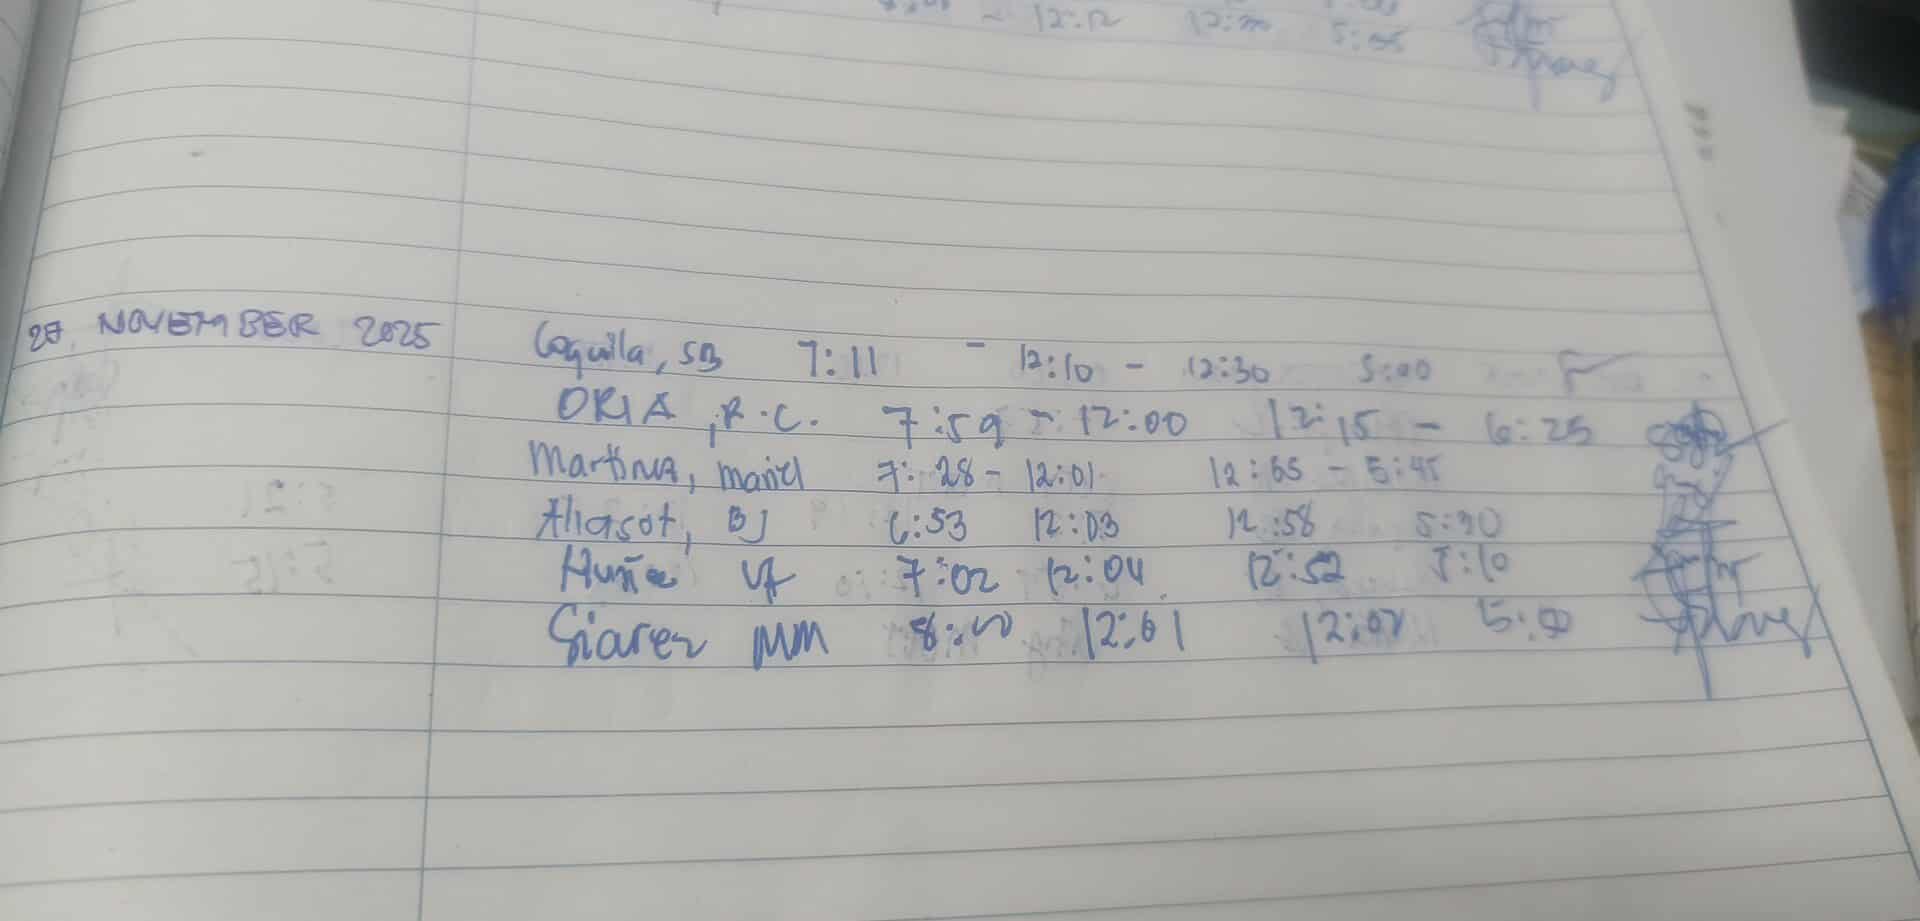 12:12 12:30 5:05
NOVEMBER 2025
Coquilla, SB 7:11 - 12:10 - 12:30 5:00
ORIA, R.C. 7:59 - 12:00 12:15 - 6:25
7:28 - 12:01 12:55 - 5:45
Aliasot, BJ 6:53 12:03 12:58 5:30
7:02 12:04 12:52 5:10
Siarez MM 8:00 12:01 12:02 5:00